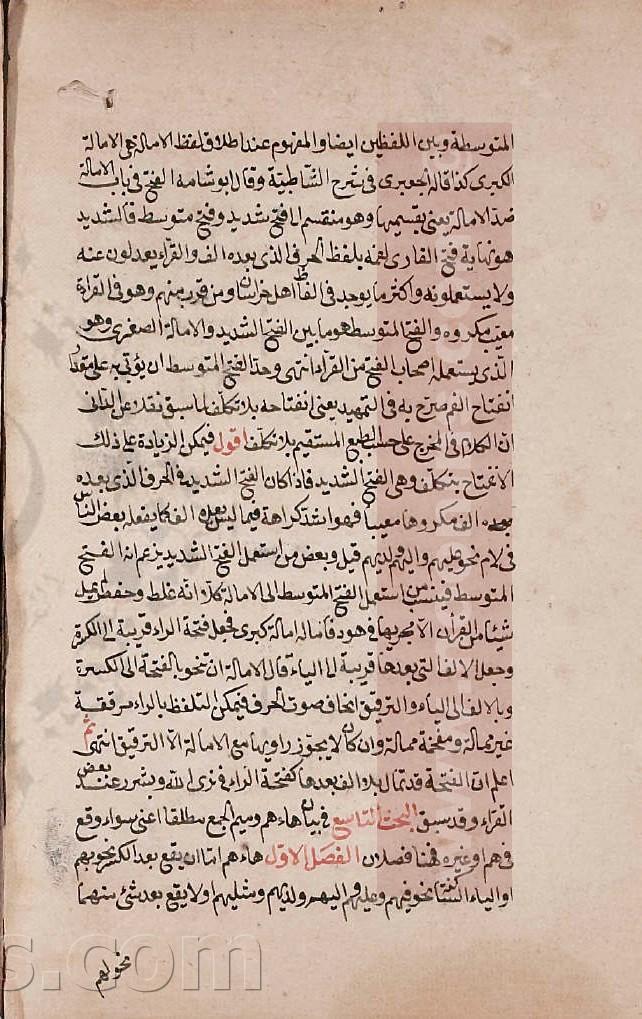 المتوسطة وبين اللفظين ايضا والمفهوم عند اطلاق لفظ الامالة هي الامالة
الكبرى كذا قاله الجعبرى فى شرح الشاطبية وقال ابو شامة الفتح فى باب الامالة
ضد الامالة يعنى بقسيمها وهو منقسم الى فتح شديد وفتح متوسط فالشديد
هو نهاية فتح القارى لفمه بلفظ الحرف الذى بعده الف والقراء يعدلون عنه
ولا يستعملونه واكثر ما يوجد فى الفاظ اهل خراسان ومن قرب منهم وهو فى القراءة
معيب مكروه والفتح المتوسط هو ما بين الفتح الشديد والامالة الصغرى وهو
الذى يستعمله اصحاب الفتح من القراء انتهى وحد الفتح المتوسط ان يؤتى به على مقدار
انفتاح الفم صرح به فى التمهيد يعنى انفتاحه بلا تكلف لما سبق نقلا عن الدانى
ان الكلام فى المخرج على حسب الطبع المستقيم بلا تكلف اقول فيمكن الزيادة على ذلك
الانفتاح بتكلف وهى الفتح الشديد فاذا كان الفتح الشديد فى الحرف الذى بعده
بعده الف مكروها معيبا فهو اشد كراهة فيما ليس بعده الف كما يفعله بعض الناس
فى لام نحو عليهم واليهم ولديهم قيل وبعض من استعمل الفتح الشديد يزعم انه الفتح
المتوسط فينسب من استعمل الفتح المتوسط الى الامالة كلا وانه غلط وحفص لم يمل
شيئا من القرأن الا مجريها فى هود فاماله امالة كبرى فجعل فتحة الراء قريبة الى الكسرة
وجعل الالف التى بعدها قريبة الى الياء قال الامالة ان تنحو بالفتحة الى الكسرة
وبالالف الى الياء والترقيق انحاف صوت الحرف فيمكن التلفظ بالراء مرققة
غير ممالة ومفخمة ممالة وان كان لا يجوز راويها مع الامالة الا الترقيق انتهى ثم
اعلم ان الفتحة قد تمال بلا والف بعدها كفتحة الراء فى نرى الله وبشرر عند بعض
القراء وقد سبق البحث التاسع فى بيان هاء هم وميم الجمع مطلقا اعنى سواء وقع
فى هم او غيره فهنا فصلان الفصل الاول هاء هم اما ان يقع بعد الكسر نحو بهم
او الياء الساكنة نحو فيهم وعليهم واليهم ولديهم ومثليهم او لا يقع بعد شئ منهما
نحو لهم
s.com